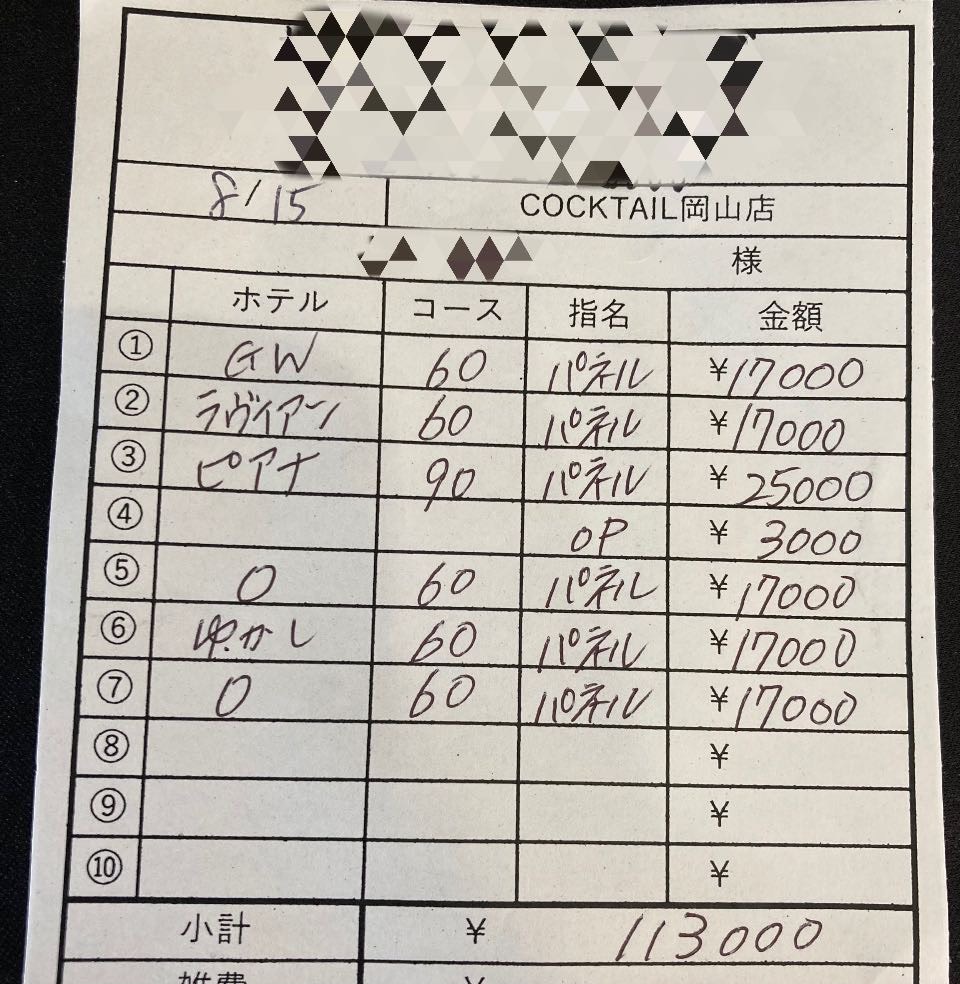 8/15 COCKTAIL岡山店
様
ホテル コース 指名 金額
① GW 60 パネル ¥17000
② ラヴィアーン 60 パネル ¥17000
③ ピアナ 90 パネル ¥25000
④ OP ¥3000
⑤ O 60 パネル ¥17000
⑥ ゆかし 60 パネル ¥17000
⑦ O 60 パネル ¥17000
⑧ ¥
⑨ ¥
⑩ ¥
小計 ¥ 113000